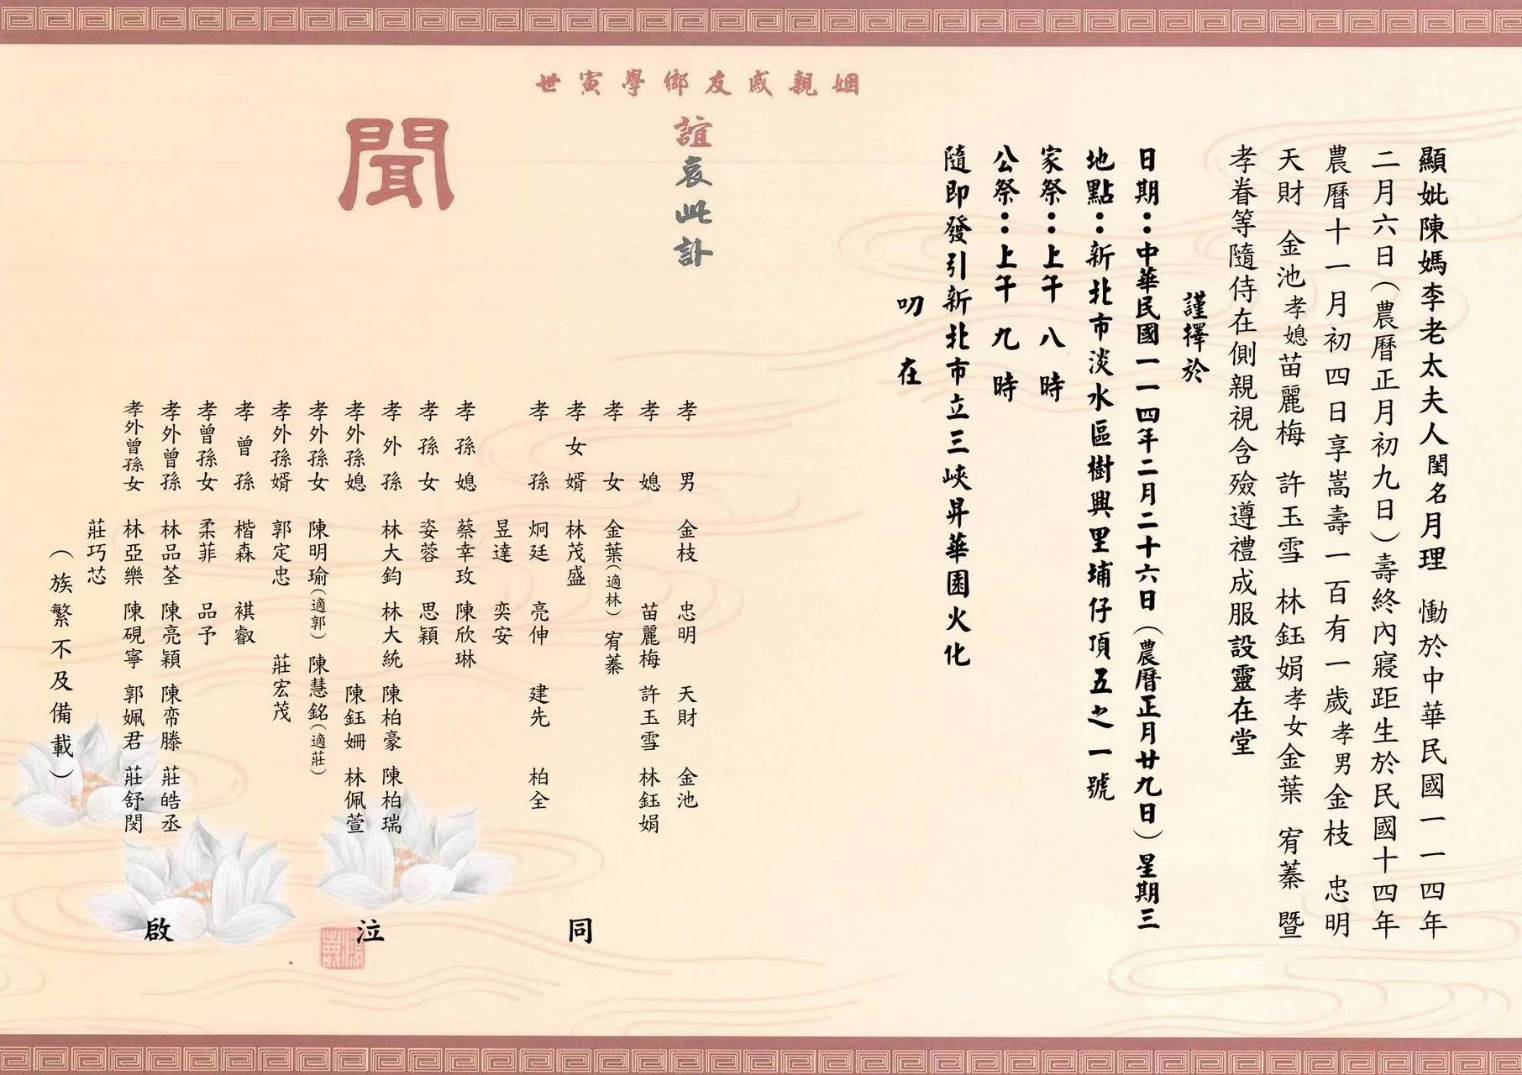 顯妣陳媽李老太夫人閨名月理 慟於中華民國一一四年
二月六日(農曆正月初九日)壽終內寢距生於民國十四年
農曆十一月初四日享嵩壽一百有一歲孝男金枝 忠明
天財 金池孝媳苗麗梅 許玉雪 林鈺娟孝女金葉 宥蓁 暨
孝眷等隨侍在側親視含殮遵禮成服設靈在堂
謹擇於
日期：中華民國一一四年二月二十六日(農曆正月廿九日)星期三
地點：新北市淡水區樹興里埔仔頂五之一號
家祭：上午 八 時
公祭：上午 九 時
隨即發引新北市立三峽昇華園火化
叨 在
姻親戚友鄉學寅世
誼哀此訃
聞
孝男 金枝 忠明 天財 金池
孝媳 苗麗梅 許玉雪 林鈺娟
孝女 金葉(適林) 宥蓁
孝女婿 林茂盛
孝孫 炯廷 亮伸 建先 柏全
昱達 奕安
孝孫媳 蔡幸玫 陳欣琳
孝孫女 姿蓉 思穎
孝外孫 林大鈞 林大統 陳柏豪 陳柏瑞
孝外孫媳 陳鈺姍 林佩萱
孝外孫女 陳明瑜(適郭) 陳慧銘(適莊)
孝外孫婿 郭定忠 莊宏茂
孝曾孫 楷森 祺叡
孝曾孫女 柔菲 品予
孝外曾孫 林品荃 陳亮穎 陳帟滕 莊皓丞
孝外曾孫女 林亞樂 陳硯寧 郭姵君 莊舒閔
莊巧芯
(族繁不及備載)
同 泣 啟